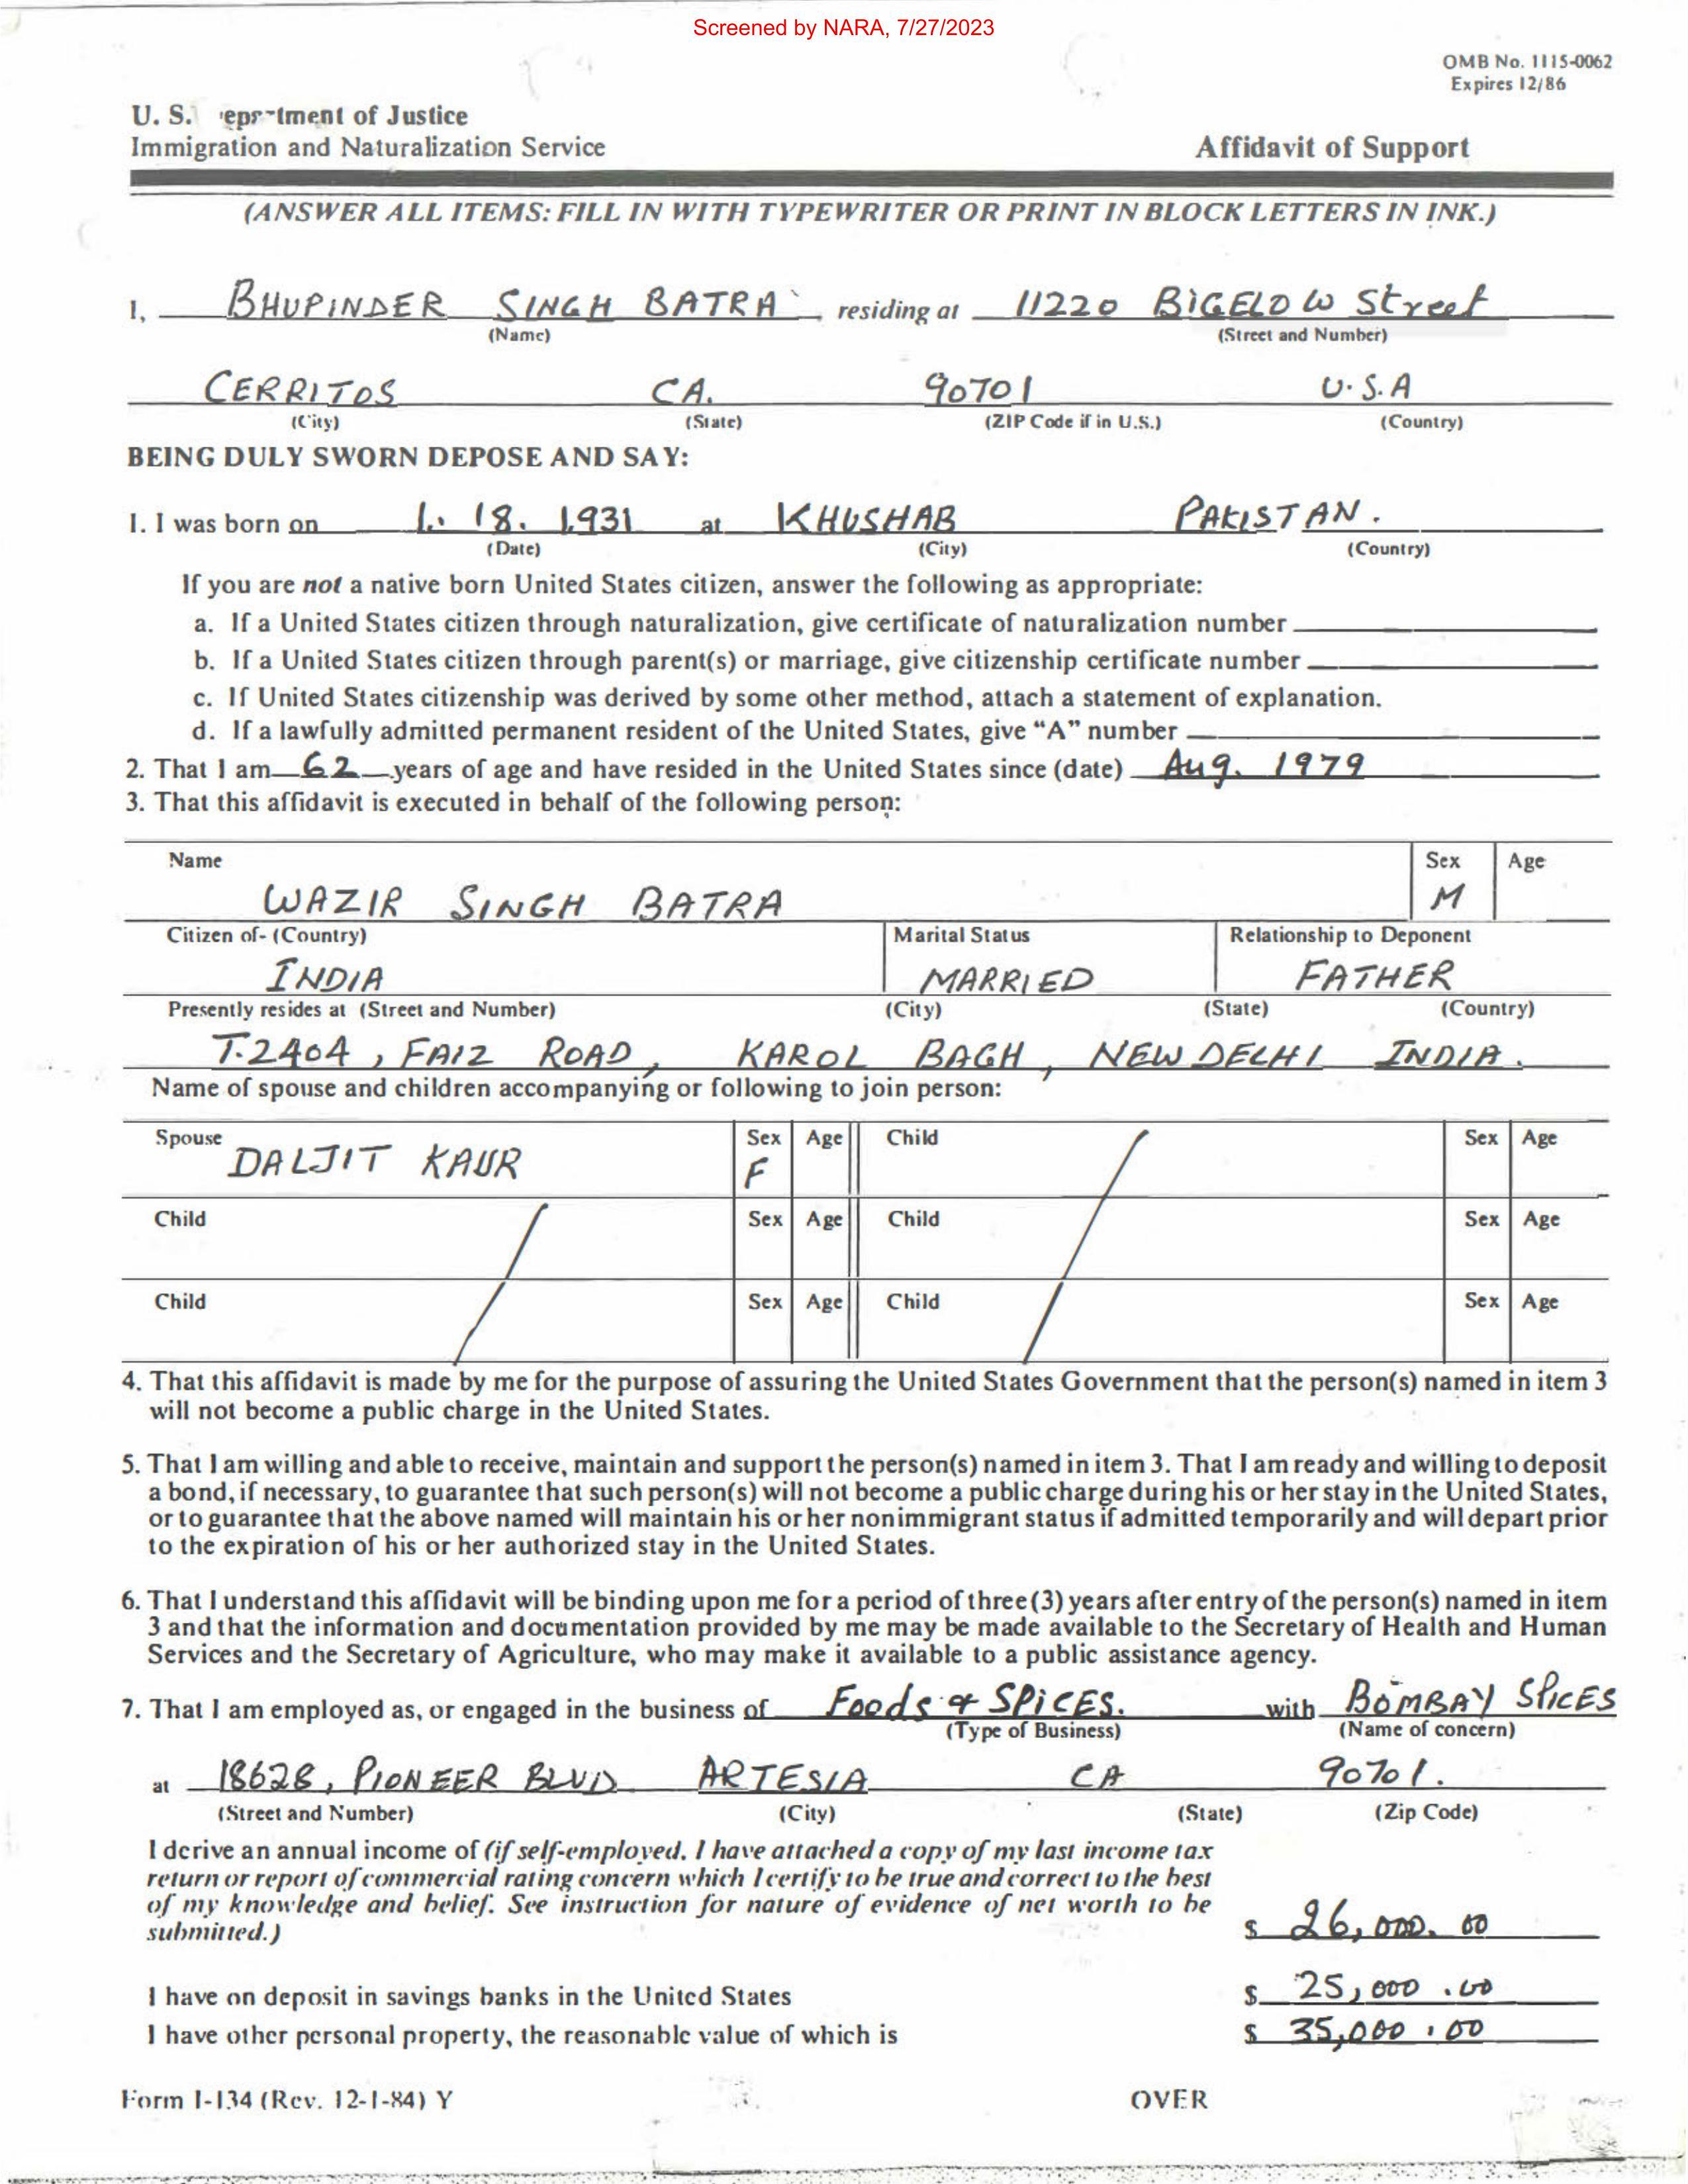 Screened by NARA, 7/27/2023
OMB No. 1115-0062
Expires 12/86
U. S. epartment of Justice
Immigration and Naturalization Service
Affidavit of Support
(ANSWER ALL ITEMS: FILL IN WITH TYPEWRITER OR PRINT IN BLOCK LETTERS IN INK.)
I, BHUPINDER SINGH BATRA, residing at 11220 BIGELOW Street
(Name) (Street and Number)
CERRITOS CA. 90701 U.S.A
(City) (State) (ZIP Code if in U.S.) (Country)
BEING DULY SWORN DEPOSE AND SAY:
1. I was born on 1. 18. 1931 at KHUSHAB PAKISTAN.
(Date) (City) (Country)
If you are not a native born United States citizen, answer the following as appropriate:
a. If a United States citizen through naturalization, give certificate of naturalization number
b. If a United States citizen through parent(s) or marriage, give citizenship certificate number
c. If United States citizenship was derived by some other method, attach a statement of explanation.
d. If a lawfully admitted permanent resident of the United States, give “A” number
2. That I am 62 years of age and have resided in the United States since (date) Aug. 1979
3. That this affidavit is executed in behalf of the following person:
Name Sex Age
WAZIR SINGH BATRA M
Citizen of- (Country) Marital Status Relationship to Deponent
INDIA MARRIED FATHER
Presently resides at (Street and Number) (City) (State) (Country)
T-2404, FAIZ ROAD, KAROL BAGH, NEW DELHI INDIA.
Name of spouse and children accompanying or following to join person:
Spouse DALJIT KAUR Sex F Age Child Sex Age
Child Sex Age Child Sex Age
Child Sex Age Child Sex Age
4. That this affidavit is made by me for the purpose of assuring the United States Government that the person(s) named in item 3
will not become a public charge in the United States.
5. That I am willing and able to receive, maintain and support the person(s) named in item 3. That I am ready and willing to deposit
a bond, if necessary, to guarantee that such person(s) will not become a public charge during his or her stay in the United States,
or to guarantee that the above named will maintain his or her nonimmigrant status if admitted temporarily and will depart prior
to the expiration of his or her authorized stay in the United States.
6. That I understand this affidavit will be binding upon me for a period of three (3) years after entry of the person(s) named in item
3 and that the information and documentation provided by me may be made available to the Secretary of Health and Human
Services and the Secretary of Agriculture, who may make it available to a public assistance agency.
7. That I am employed as, or engaged in the business of Foods & SPICES. with BOMBAY SPICES
(Type of Business) (Name of concern)
at 18628, PIONEER BLVD ARTESIA CA 90701.
(Street and Number) (City) (State) (Zip Code)
I derive an annual income of (if self-employed, I have attached a copy of my last income tax
return or report of commercial rating concern which I certify to be true and correct to the best
of my knowledge and belief. See instruction for nature of evidence of net worth to be
submitted.) $ 26,000.00
I have on deposit in savings banks in the United States $ 25,000.00
I have other personal property, the reasonable value of which is $ 35,000.00
Form I-134 (Rev. 12-1-84) Y OVER